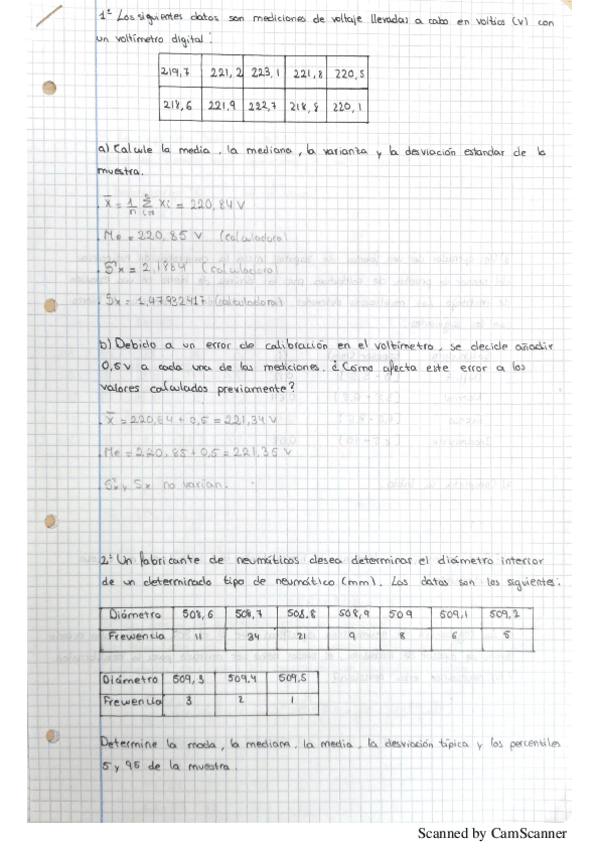 1º Los siguientes datos son mediciones de voltaje llevadas a cabo en voltios (V) con
un voltímetro digital:
219,7 221,2 223,1 221,8 220,5
218,6 221,9 222,7 218,8 220,1
a) Calcule la media, la mediana, la varianza y la desviación estandar de la
muestra.
x̄ = 1/n Σ xi = 220,84 V
Me = 220,85 V (calculadora)
S²x = 2,1864 (calculadora)
Sx = 1,47932417 (calculadora)
b) Debido a un error de calibración en el voltímetro, se decide añadir
0,5 V a cada una de las mediciones. ¿Cómo afecta este error a los
valores calculados previamente?
x̄ = 220,84 + 0,5 = 221,34 V
Me = 220,85 + 0,5 = 221,35 V
S²x y Sx no varían.
2º Un fabricante de neumáticos desea determinar el diámetro interior
de un determinado tipo de neumático (mm). Los datos son los siguientes:
Diámetro 508,6 508,7 508,8 508,9 509 509,1 509,2
Frecuencia 11 34 21 9 8 6 5
Diámetro 509,3 509,4 509,5
Frecuencia 3 2 1
Determine la moda, la mediana, la media, la desviación típica y los percentiles
5 y 95 de la muestra.
Scanned by CamScanner